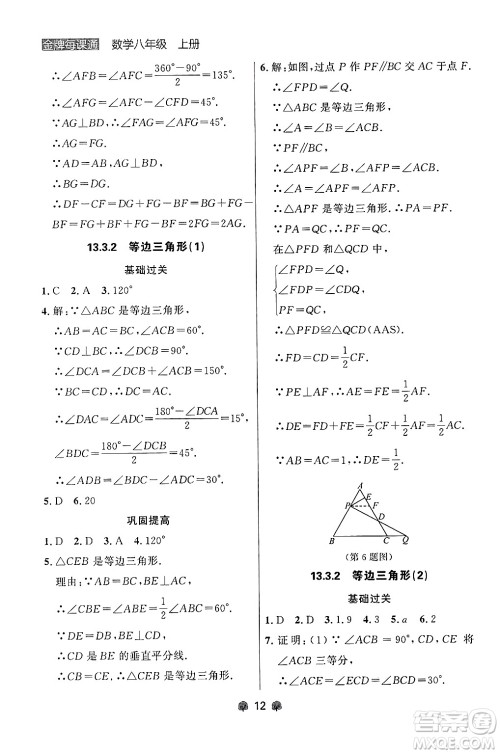 金牌每课通 数学八年级 上册
∴∠AFB=∠AFC=(360°-90°)/2=135°.
∴∠AFG=∠AFC-∠CFD=45°.
∵AG⊥BD,∴∠FAG=45°.
∴AG=FG.
∵AD=AB,AG⊥BD,
∴BG=DG.
∴DF-CF=DG+FG-BF=BG+FG-
BF=FG+FG=2FG=2AG.
13.3.2 等边三角形(1)
基础过关
1.C 2.A 3.120°
4.解:∵△ABC是等边三角形,
∴AC=BC,∠ACB=60°.
∵CD⊥BC,∴∠BCD=90°.
∴∠DCA=∠DCB+∠ACB=150°.
∵CD=BC,∴AC=CD.
∴∠DAC=∠ADC=(180°-∠DCA)/2=15°,
∠BDC=(180°-∠DCB)/2=45°.
∴∠ADB=∠BDC-∠ADC=30°.
5.D 6.20
巩固提高
1.D 2.D 3.A 4.120°
5.△CEB是等边三角形.
理由:∵AB=BC,∠ABC=120°,
BE⊥AC,
∴∠CBE=∠ABE=60°.
又∵DE=DB,BE⊥AC,
∴CB=CE.
∴△CEB是等边三角形.
6.解:如图,过点P作PF∥BC交AC于点F.
∴∠APF=∠B,∠AFP=∠ACB.
∵△ABC是等边三角形,
∴∠A=∠B=∠ACB=60°.
∵PF∥BC,
∴∠APF=∠AFP=60°.
∴△APF是等边三角形.
∴PA=PF.
∵PA=QC,∴PF=QC.
在△PFD与△QCD中,
∠FPD=∠Q,
∠PDF=∠QDC,
PF=QC,
∴△PFD≌△QCD(AAS).
∴FD=CD=1/2CF.
∵PE⊥AF,∴EF=1/2AF.
∴DE=EF+FD=1/2AF+1/2CF=1/2AC.
∵AC=3,∴DE=1/2AC=1.5.
A
E
P
F
D
B
C
Q
(第6题图)
13.3.2 等边三角形(2)
基础过关
1.D 2.D 3.1.9 4.3 5.a 6.2
7.证明:(1)∵∠ACB=90°,CD,CE将
∠ACB三等分,
∴∠ACE=∠DCE=∠BCD=30°.
12